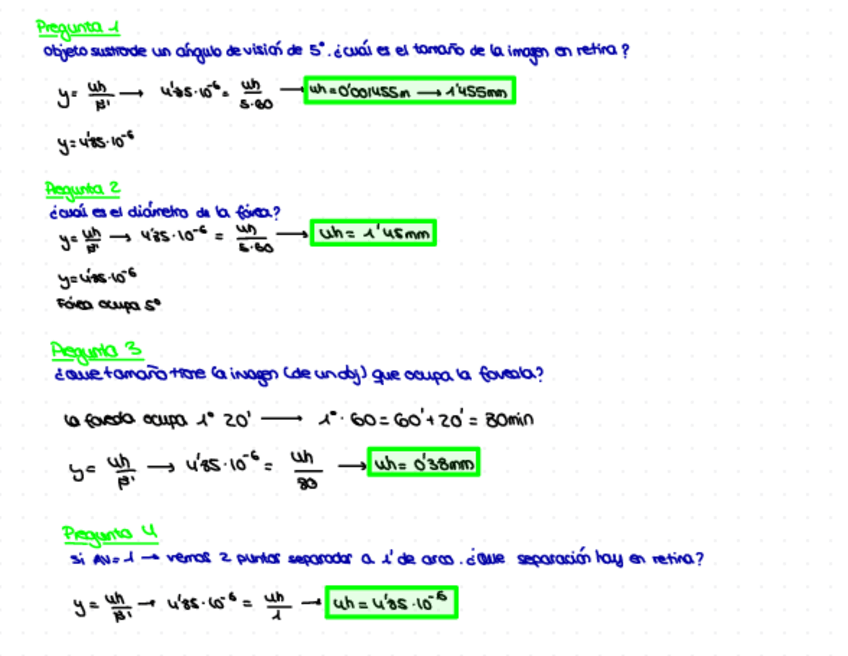 Pregunta 1
Objeto sustiende un ángulo de visión de 5°. ¿cuál es el tamaño de la imagen en retina?
y = uh/β' → 4'85·10⁻⁶ = uh/5·60 → uh = 0'001455m → 1'455mm
y = 4'85·10⁻⁶
Pregunta 2
¿cuál es el diámetro de la fóvea?
y = uh/β' → 4'85·10⁻⁶ = uh/5·60 → uh = 1'45mm
y = 4'85·10⁻⁶
Fóvea ocupa 5°
Pregunta 3
¿Que tamaño tiene la imagen (de un obj) que ocupa la foveola?
la foveola ocupa 1° 20' → 1°·60 = 60' + 20' = 80min
y = uh/β' → 4'85·10⁻⁶ = uh/80 → uh = 0'38mm
Pregunta 4
Si AV = 1 → vemos 2 puntos separados a 1' de arco. ¿Que separación hay en retina?
y = uh/β' → 4'85·10⁻⁶ = uh/1 → uh = 4'85·10⁻⁶